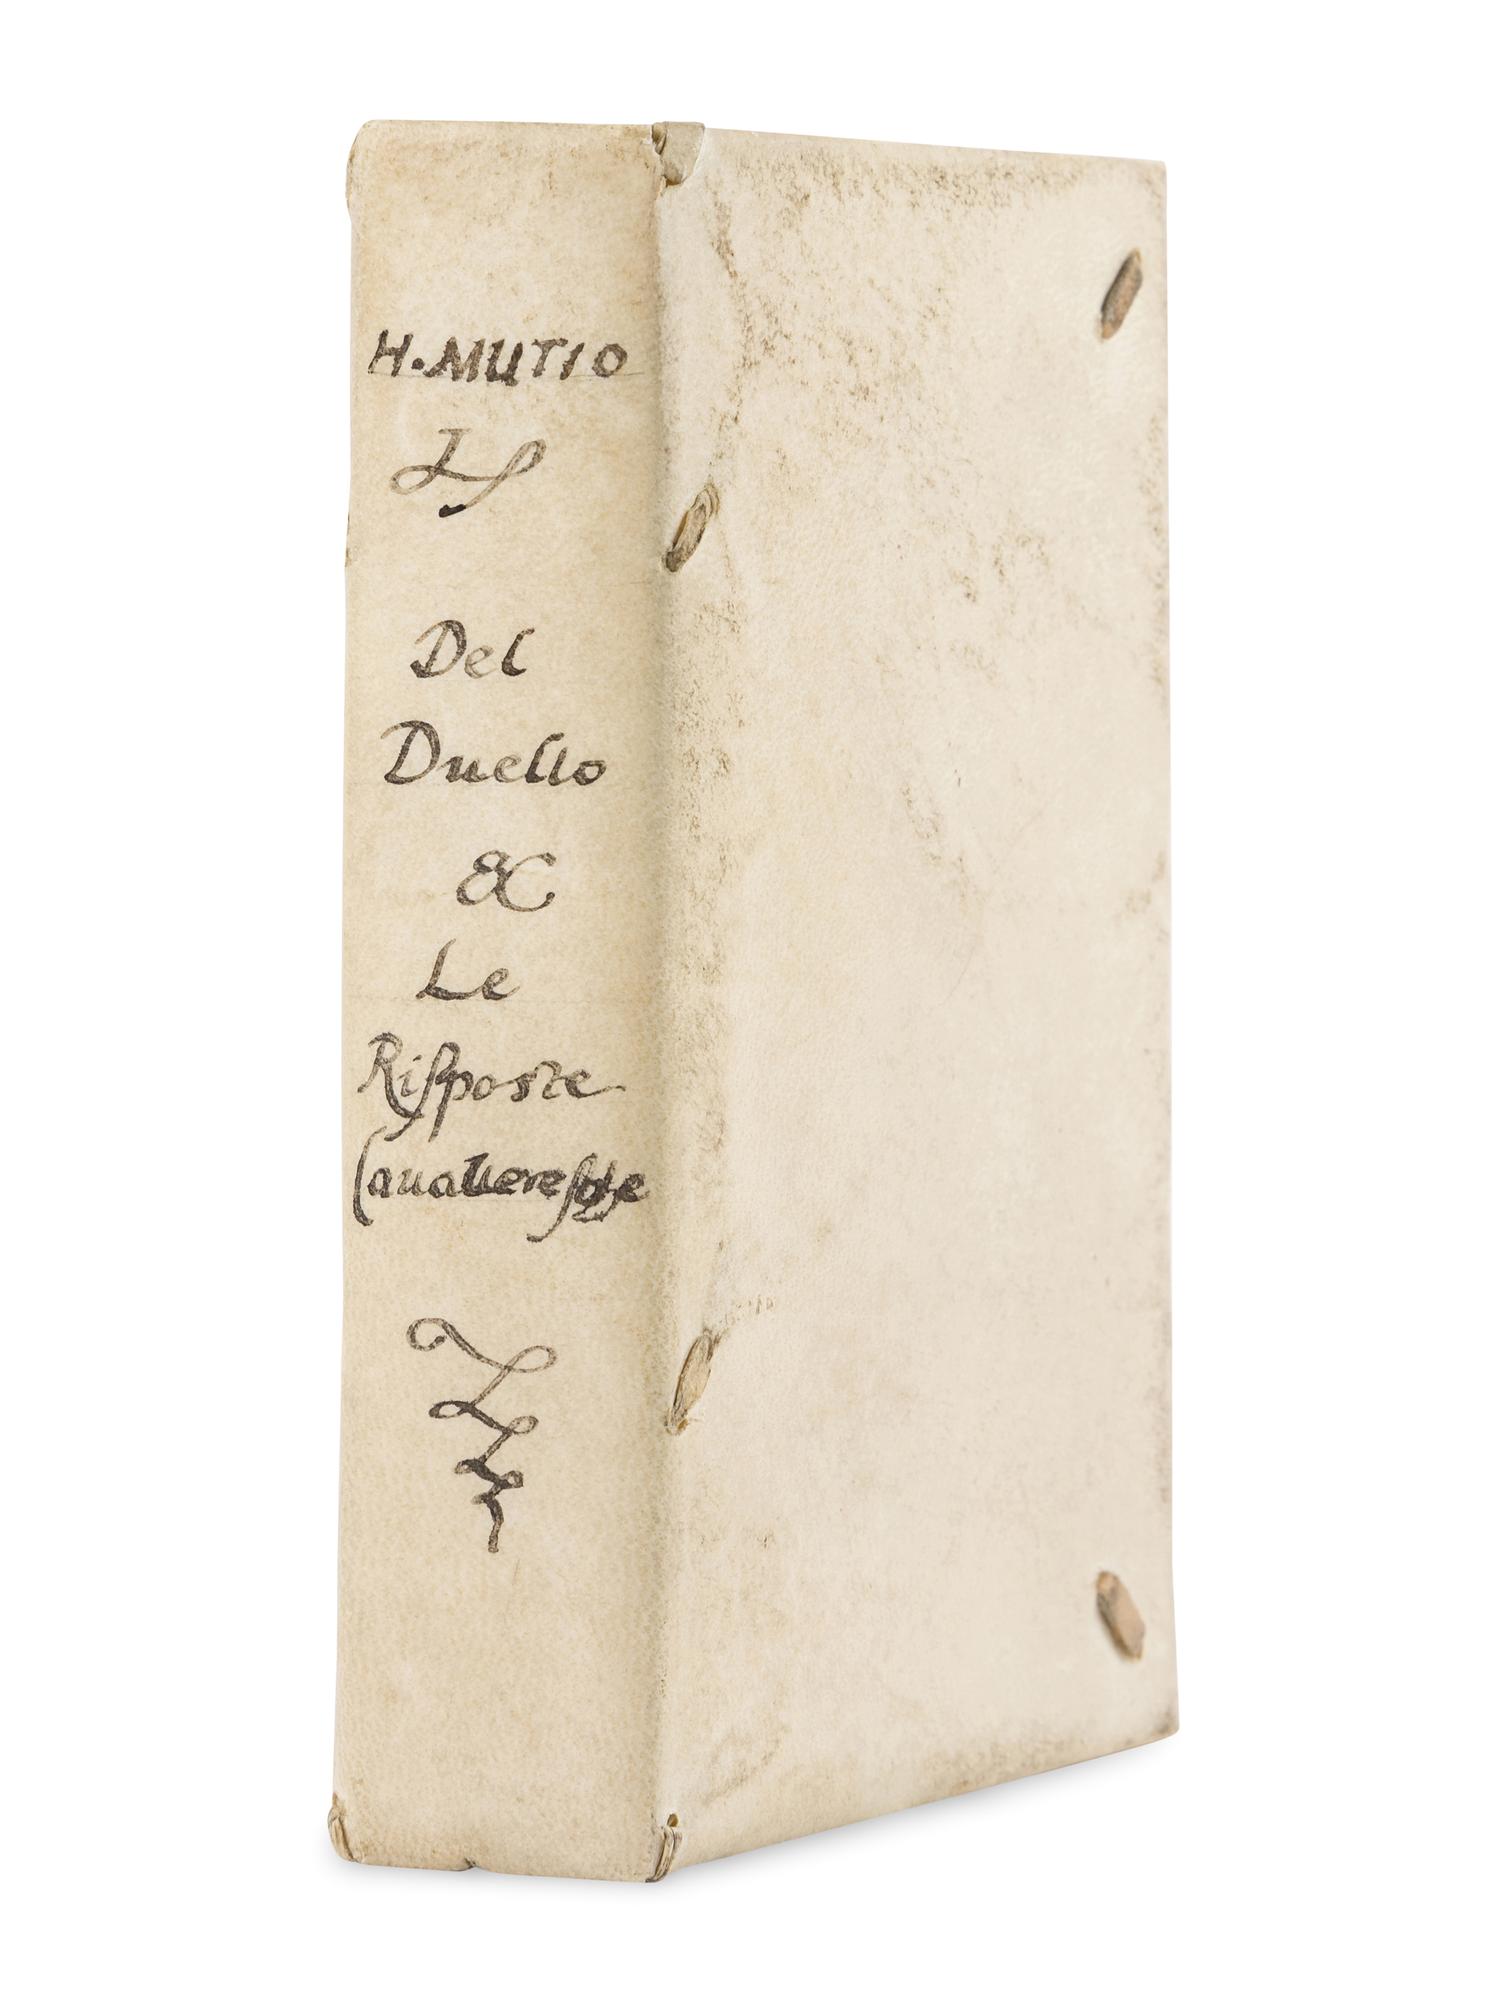 H. MUTIO
Del
Duello
&
Le
Riſposte
Caualiereſche